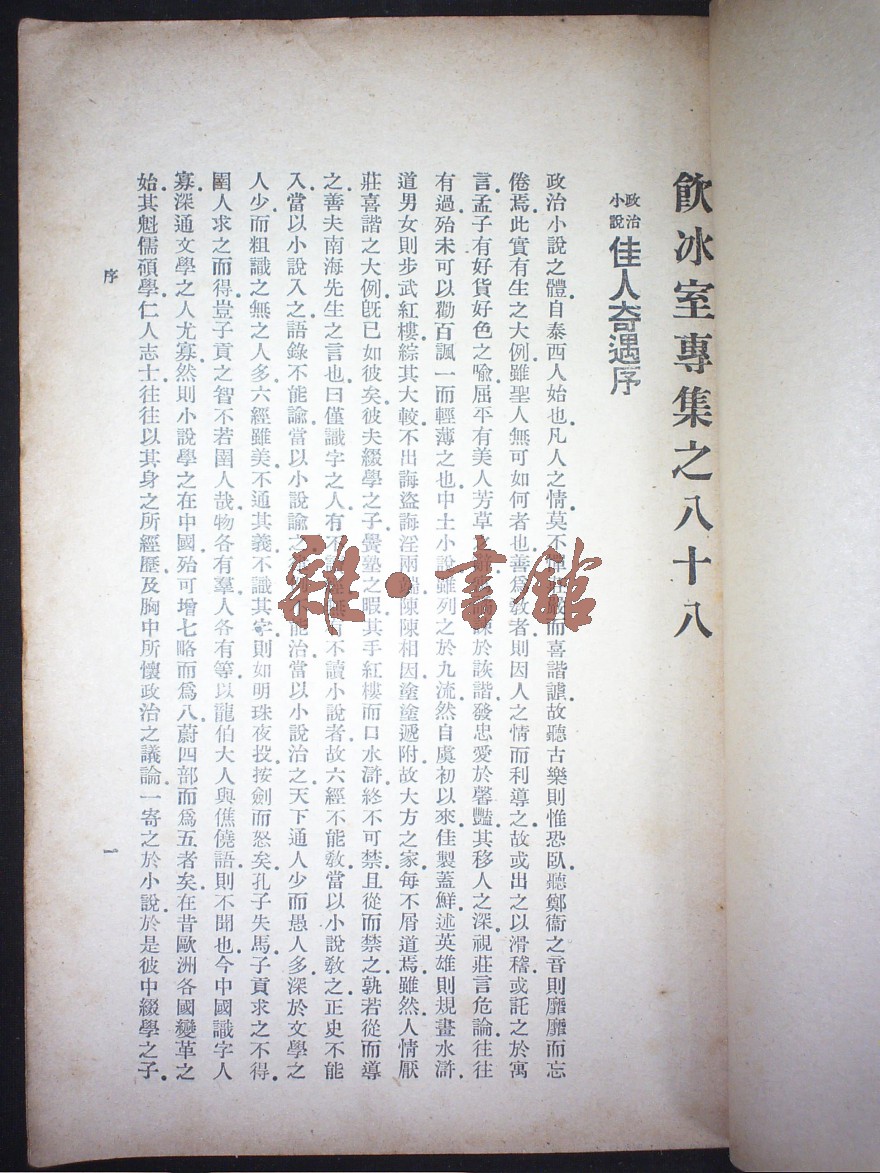 飲冰室專集之八十八
政治小說 佳人奇遇序
政治小說之體自泰西人始也凡人之情莫不憚莊嚴而喜諧謔故聽古樂則惟恐臥聽鄭衞之音則靡靡而忘
倦焉此實有生之大例雖聖人無可如何者也善爲敎者則因人之情而利導之故或出之以滑稽或託之於寓
言孟子有好貨好色之喩屈平有美人芳草之諫於詼諧發忠愛於馨豔其移人之深視莊言危論往往
有過殆未可以勸百諷一而輕薄之也中土小說雖列之於九流然自虞初以來佳製蓋鮮述英雄則規畫水滸
道男女則步武紅樓綜其大較不出誨盜誨淫兩端陳陳相因塗塗遞附故大方之家每不屑道焉雖然人情厭
莊喜諧之大例旣已如彼矣彼夫綴學之子黌塾之暇其手紅樓而口水滸終不可禁且從而禁之孰若從而導
之善夫南海先生之言也曰僅識字之人有不讀經無有不讀小說者故六經不能敎當以小說敎之正史不能
入當以小說入之語錄不能諭當以小說諭之不能治當以小說治之天下通人少而愚人多深於文學之
人少而粗識之無之人多六經雖美不通其義不識其字則如明珠夜投按劍而怒矣孔子失馬子貢求之不得
圉人求之而得豈子貢之智不若圉人哉物各有羣人各有等以龍伯大人與僬僥語則不聞也今中國識字人
寡深通文學之人尤寡然則小說學之在中國殆可增七略而爲八蔚四部而爲五者矣在昔歐洲各國變革之
始其魁儒碩學仁人志士往往以其身之所經歷及胸中所懷政治之議論一寄之於小說於是彼中綴學之子
序
一
雜·書館